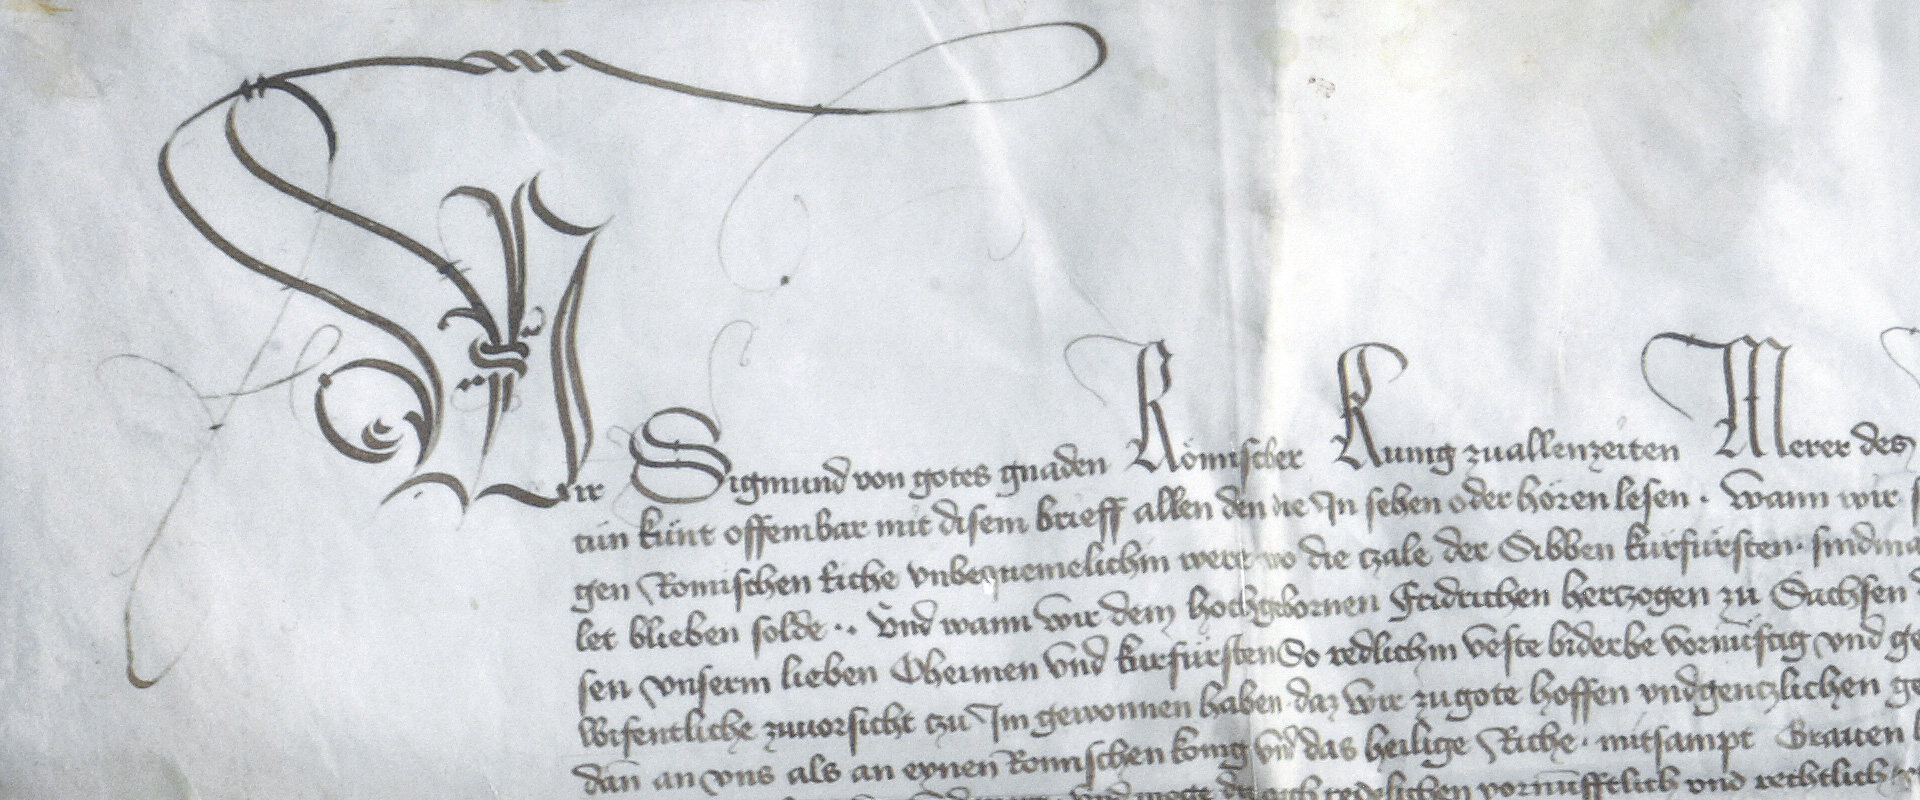 Wir Sigmund von gotes gnaden Römischer Kunig zuallenzeiten Merer des
tün künt offembar mit disem brieff allen den die In sehen oder hören lesen · Wann wir
gen Romischen Riche vnbequemelichin were wo die czale der Sibben kurfürsten · sindma
let blieben solde ·· Vnd wann wir dem hochgebornen Fridrichen herczogen zu Sachsen
sen vnserm lieben Oheimen vnd kurfürsten So redlichin veste biderbe vornüftig vnd ge
wisentliche zuuorsicht czu Im gewonnen haben daz wir zugote hoffen vndgenczlichen ge
dan an vns als an eynen Romischen konig vnd das heilige Riche · mitsampt Brauen
redelichen vornufftlich vnd rechtlich